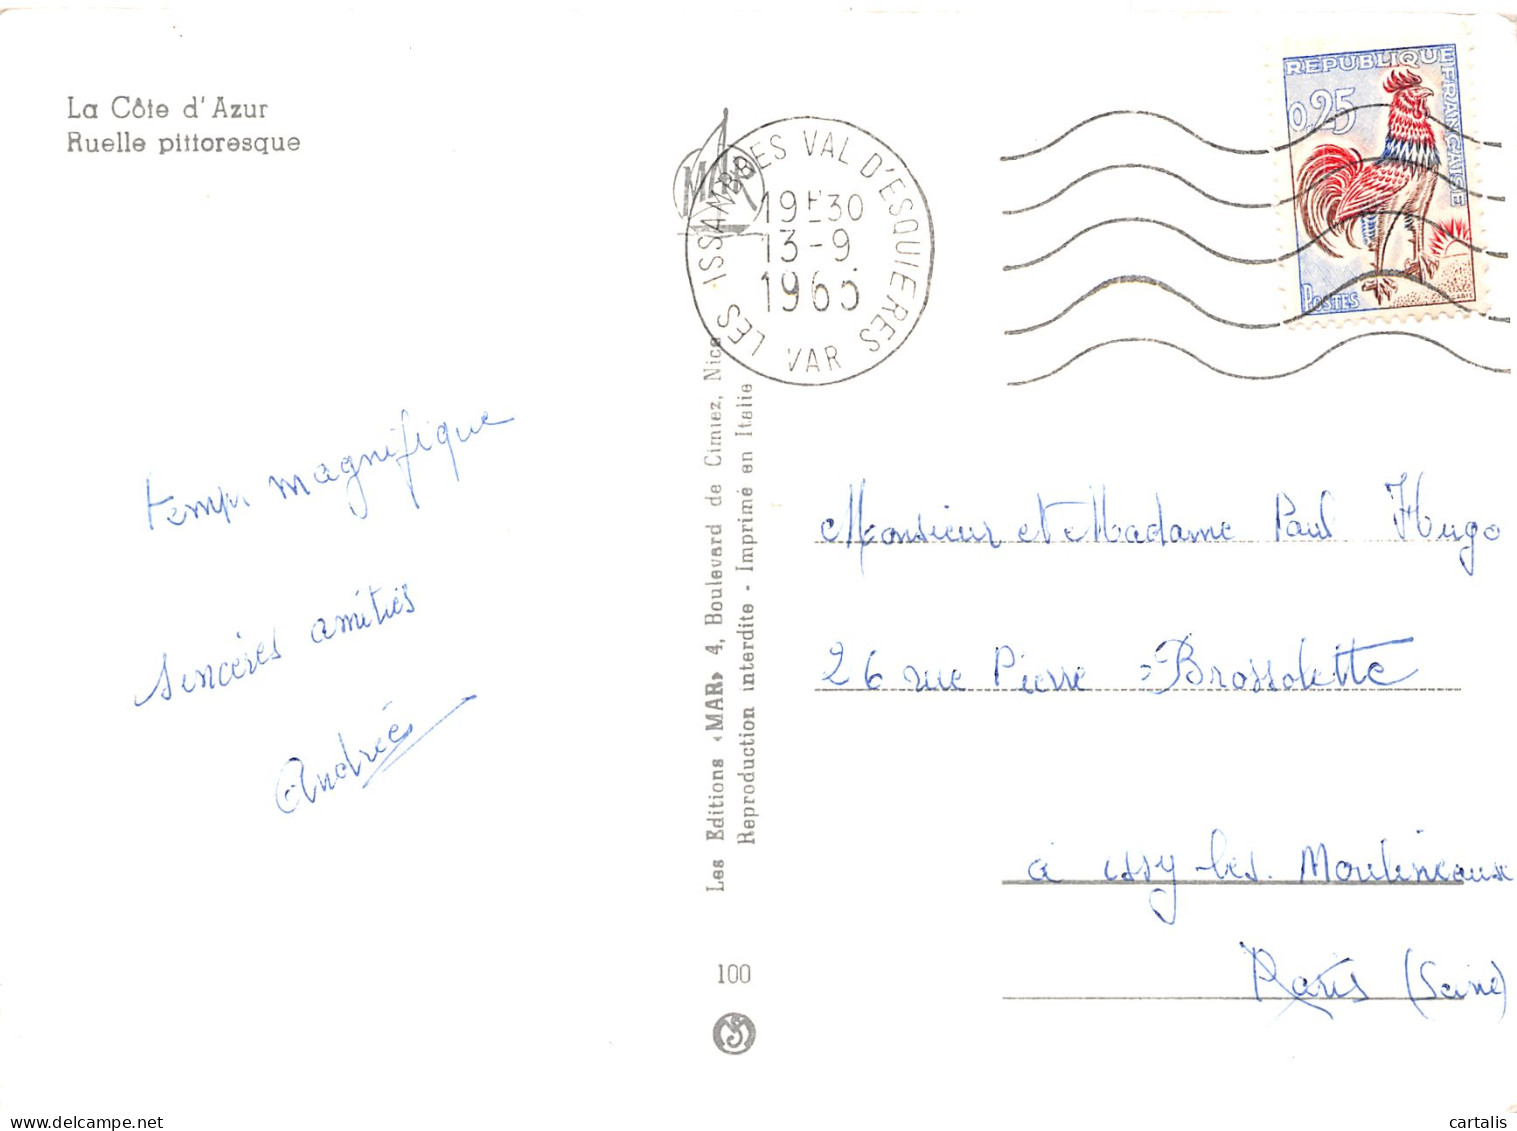 La Côte d'Azur
Ruelle pittoresque
MAR
LES ISSAMBRES VAL D'ESQUIERES
19H30
13-9
1965
VAR
REPUBLIQUE FRANÇAISE
0,25
POSTES
temps magnifique
sincères amitiés
Andrée
Les Editions «MAR» 4, Boulevard de Cimiez, Nice
Reproduction interdite - Imprimé en Italie
100
Monsieur et Madame Paul Hugo
26 rue Pierre Brossolette
à issy les Moulineaux
Paris (Seine)
www.delcampe.net
cartalis